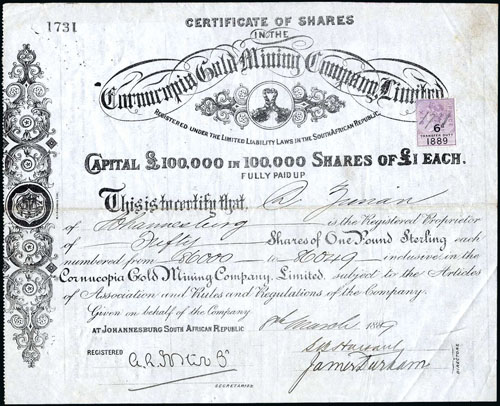 1731
CERTIFICATE OF SHARES
IN THE
Cornucopia Gold Mining Company Limited
REGISTERED UNDER THE LIMITED LIABILITY LAWS IN THE SOUTH AFRICAN REPUBLIC.
6D
TRANSFER DUTY
1889
CAPITAL £100,000 IN 100,000 SHARES OF £1 EACH.
FULLY PAID UP
This is to certify that
of Johannesburg is the Registered Proprietor
of Fifty Shares of One Pound Sterling each
numbered from 86000 to 86049 inclusive in the
Cornucopia Gold Mining Company, Limited, subject to the Articles
of Association and Rules and Regulations of the Company.
Given on behalf of the Company
AT JOHANNESBURG SOUTH AFRICAN REPUBLIC March 1889
REGISTERED
James Durham
DIRECTORS
SECRETARIES